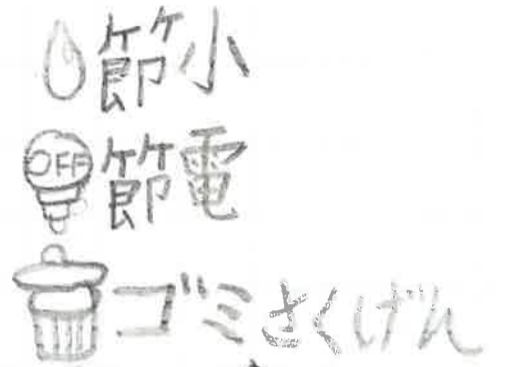 節小
OFF 節電
ゴミさくげん